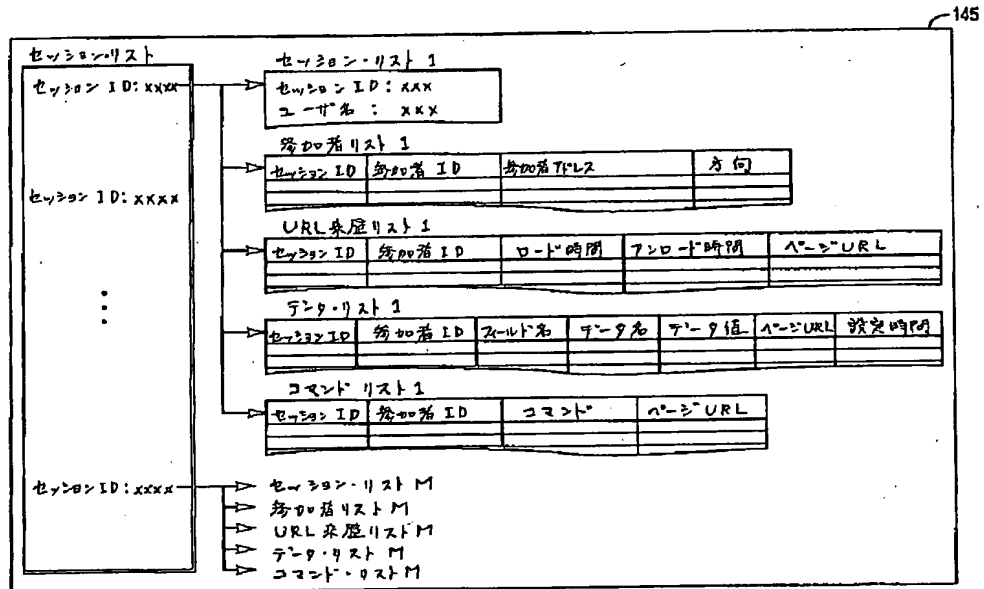 145
セッション・リスト
セッション ID: xxxx
セッション・リスト 1
セッション ID: xxx
ユーザ名 : xxx
参加者リスト 1
セッション ID 参加者 ID 参加者アドレス 方向
セッション ID: xxxx
URL来歴リスト 1
セッション ID 参加者 ID ロード時間 アンロード時間 ページURL
データ・リスト 1
セッション ID 参加者 ID フィールド名 データ名 データ値 ページURL 設定時間
コマンド リスト 1
セッション ID 参加者 ID コマンド ページURL
セッション ID: xxxx
セッション・リスト M
参加者リスト M
URL来歴リスト M
データ・リスト M
コマンド・リスト M